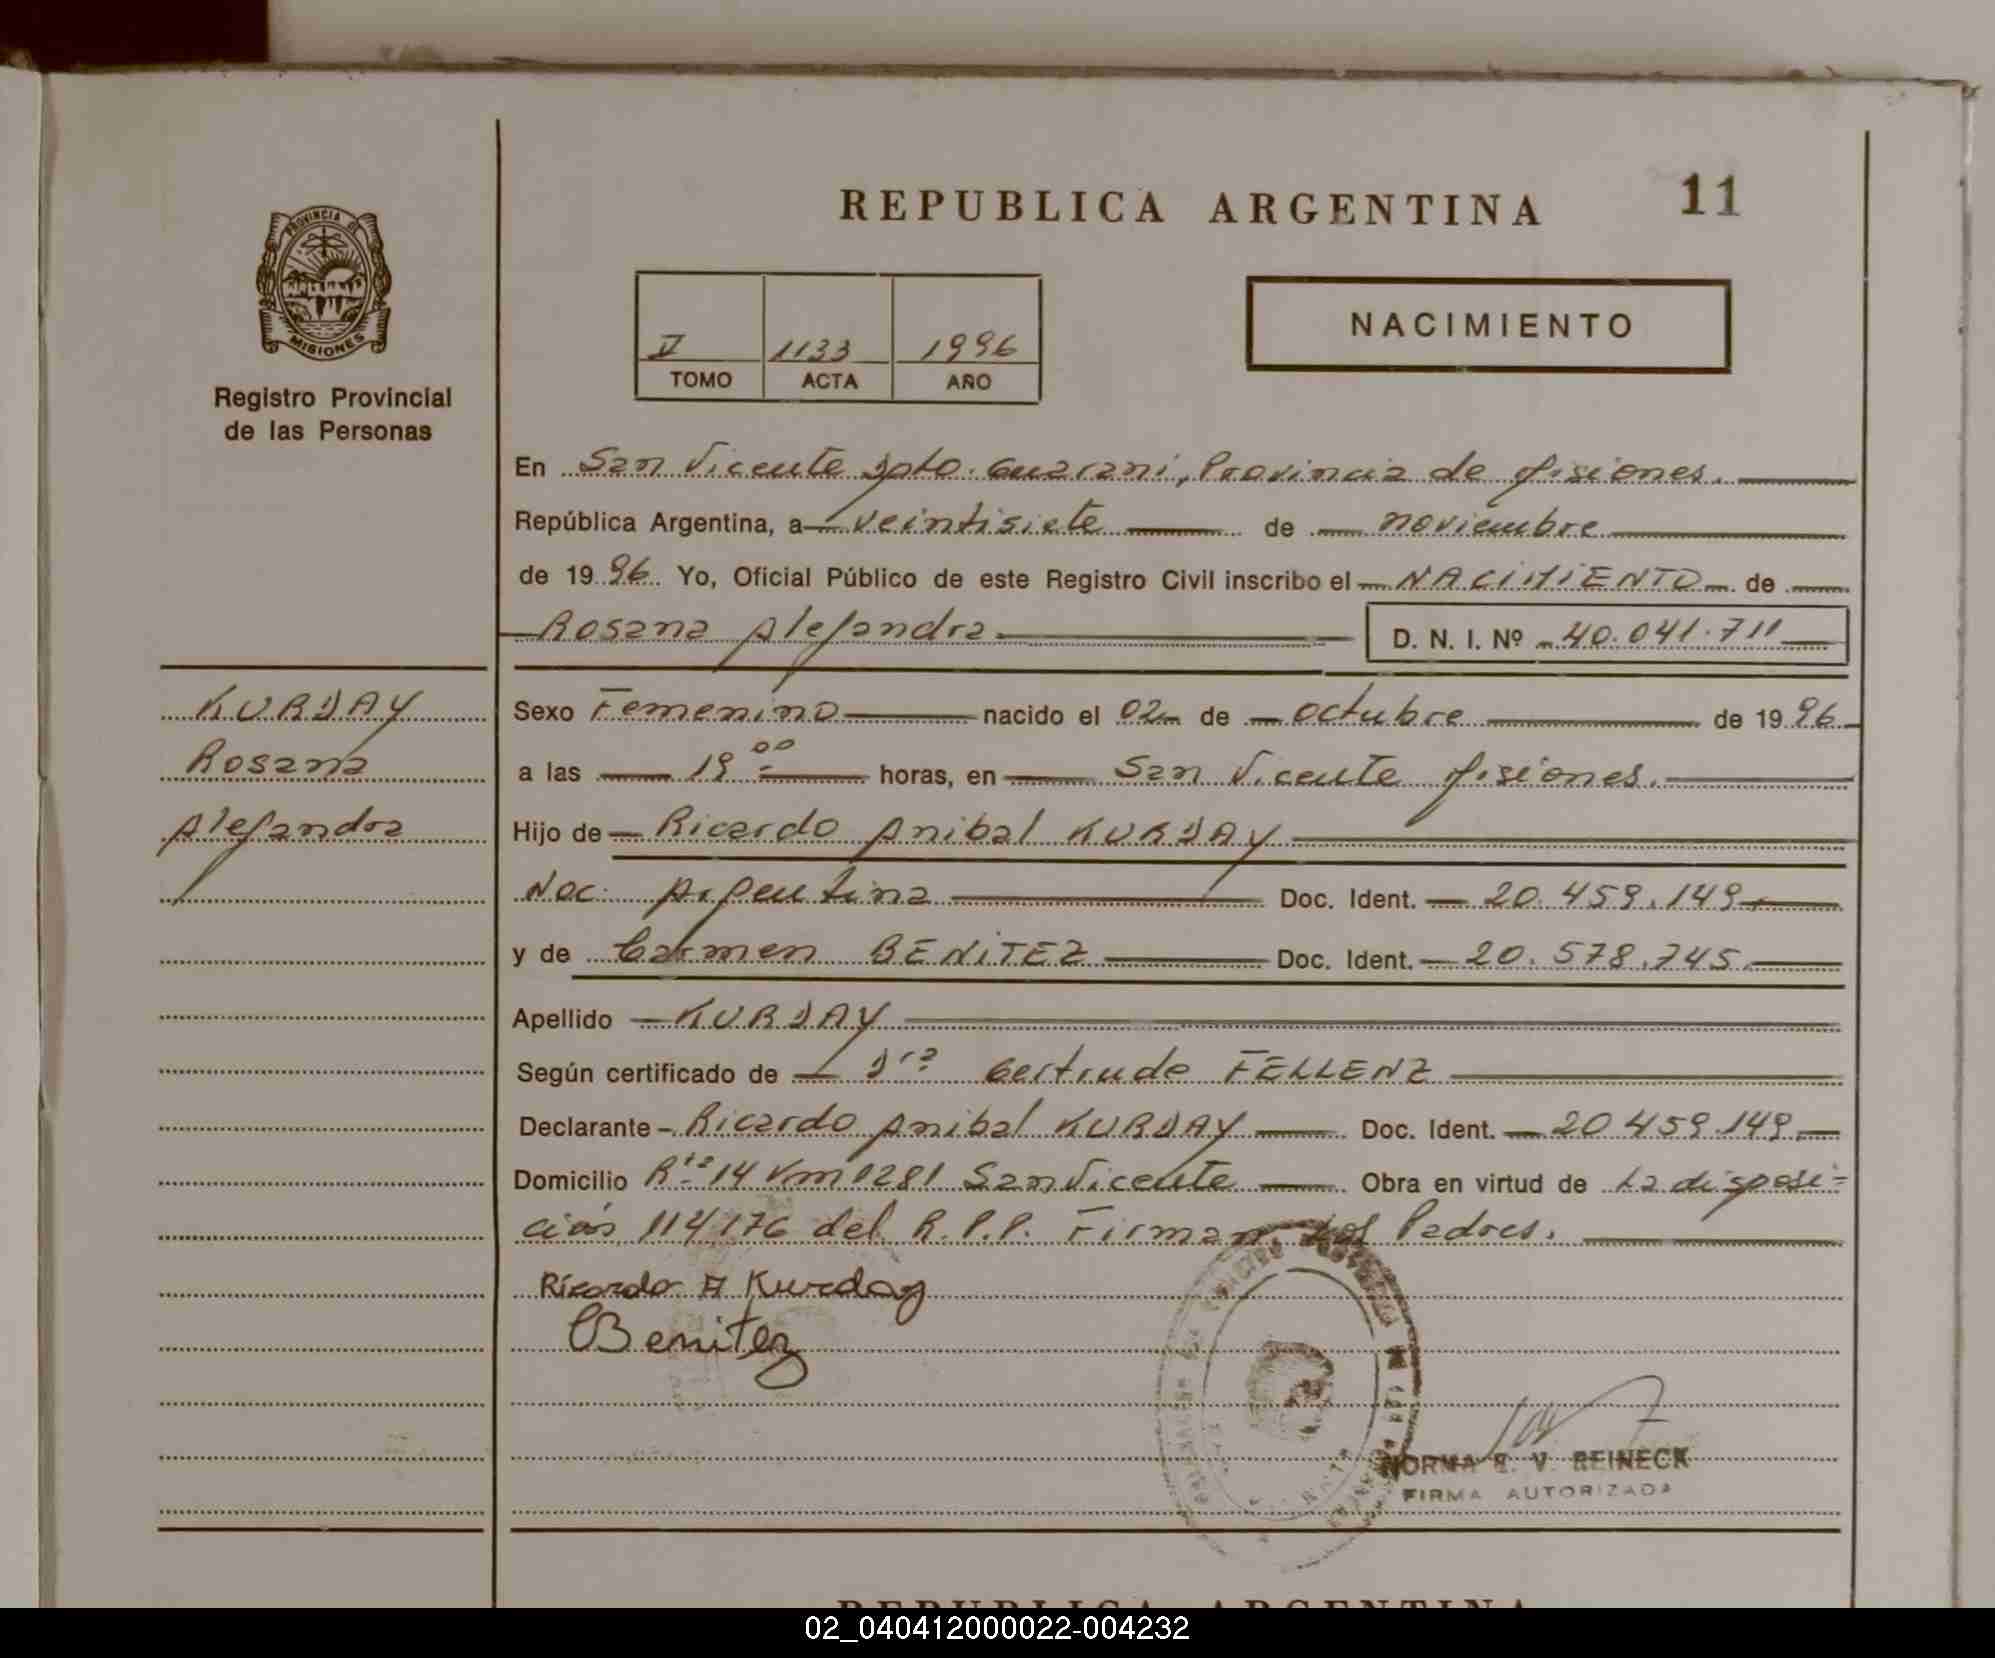 REPUBLICA ARGENTINA 11
PROVINCIA DE
MISIONES
Registro Provincial
de las Personas
II 1133 1996
TOMO ACTA AÑO
NACIMIENTO
En San Vicente Dpto. Guarani, Provincia de Misiones.
República Argentina, a veintisiete de noviembre
de 19 96 Yo, Oficial Público de este Registro Civil inscribo el NACIMIENTO de
Rosana Alejandra D. N. I. Nº 40.041.711
KURDAY
Rosana
Alejandra
Sexo Femenino nacido el 02 de octubre de 19 96
a las 19 00 horas, en San Vicente Misiones.
Hijo de Ricardo Anibal KURDAY
Nac. Argentina Doc. Ident. 20.459.149
y de Carmen BENITEZ Doc. Ident. 20.578.745.
Apellido KURDAY
Según certificado de Dra Gertrude FELLENZ
Declarante Ricardo Anibal KURDAY Doc. Ident. 20459.149.
Domicilio Rta 14 Km 1281 San Vicente Obra en virtud de La disposi-
ción 114/76 del R.P.P. Firman los Padres.
Ricardo A Kurday
Benitez
NORMA E. V. REINECK
FIRMA AUTORIZADA
REPUBLICA ARGENTINA
02_040412000022-004232